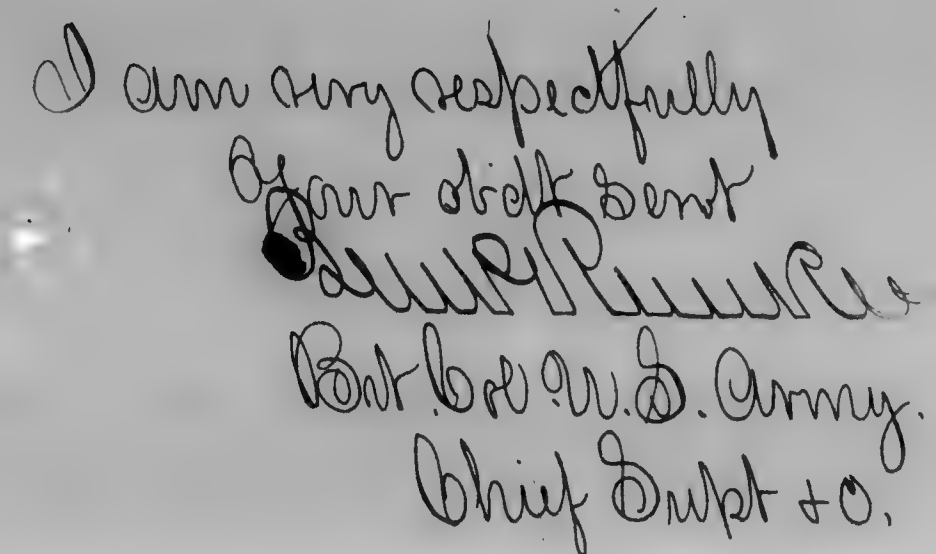 I am very respectfully
Your obdt Servt
Ben P Runkle
Bvt. Col U.S. Army.
Chief Supt &c.